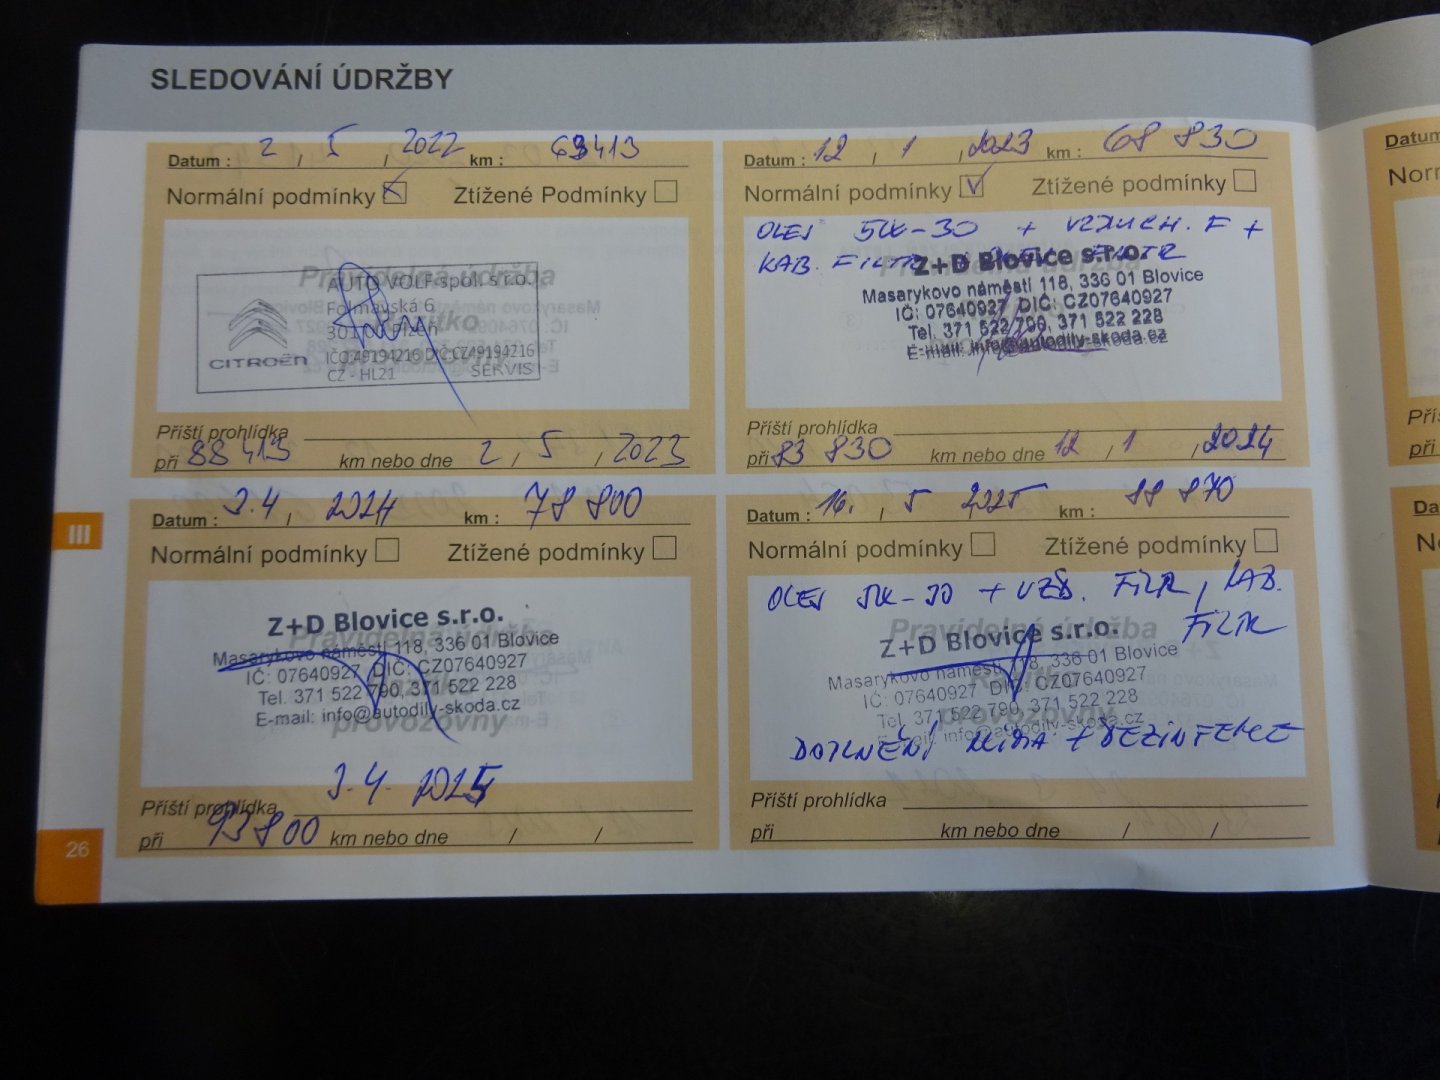 SLEDOVÁNÍ ÚDRŽBY
Datum : 2 / 5 / 2022 km : 63413
Normální podmínky Ztížené Podmínky
AUTO VOLF spol. s r.o.
Folmavská 6
301 00 Plzeň
CITROËN
IČO:49194216 DIČ:CZ49194216
CZ - HL21 SERVIS
Příští prohlídka
při 88 413 km nebo dne 2 / 5 / 2023
Datum : 12 / 1 / 2023 km : 68 830
Normální podmínky Ztížené Podmínky
OLEJ 5W-30 + VZDUCH. F +
KAB. FILTR
Z+D Blovice s.r.o.
Masarykovo náměstí 118, 336 01 Blovice
IČ: 07640927 DIČ: CZ07640927
Tel. 371 522 790, 371 522 228
E-mail: info@autodily-skoda.cz
Příští prohlídka
při 83 830 km nebo dne 12 / 1 / 2024
III
Datum : 3.4 / 2024 km : 78 800
Normální podmínky Ztížené Podmínky
Pravidelná údržba
Z+D Blovice s.r.o.
Masarykovo náměstí 118, 336 01 Blovice
IČ: 07640927 DIČ: CZ07640927
Tel. 371 522 790, 371 522 228
E-mail: info@autodily-skoda.cz
provozovny
3.4. 2025
Příští prohlídka
při 93 800 km nebo dne / /
Datum : 16. / 5 2025 km : 88 870
Normální podmínky Ztížené Podmínky
OLEJ 5W-30 + VZD. FILTR, KAB.
FILTR
Pravidelná údržba
Z+D Blovice s.r.o.
Masarykovo náměstí 118, 336 01 Blovice
IČ: 07640927 DIČ: CZ07640927
Tel. 371 522 790, 371 522 228
E-mail: info@autodily-skoda.cz
DOPLNĚNÍ KLIMA + DEZINFEKCE
Příští prohlídka
při km nebo dne / /
26